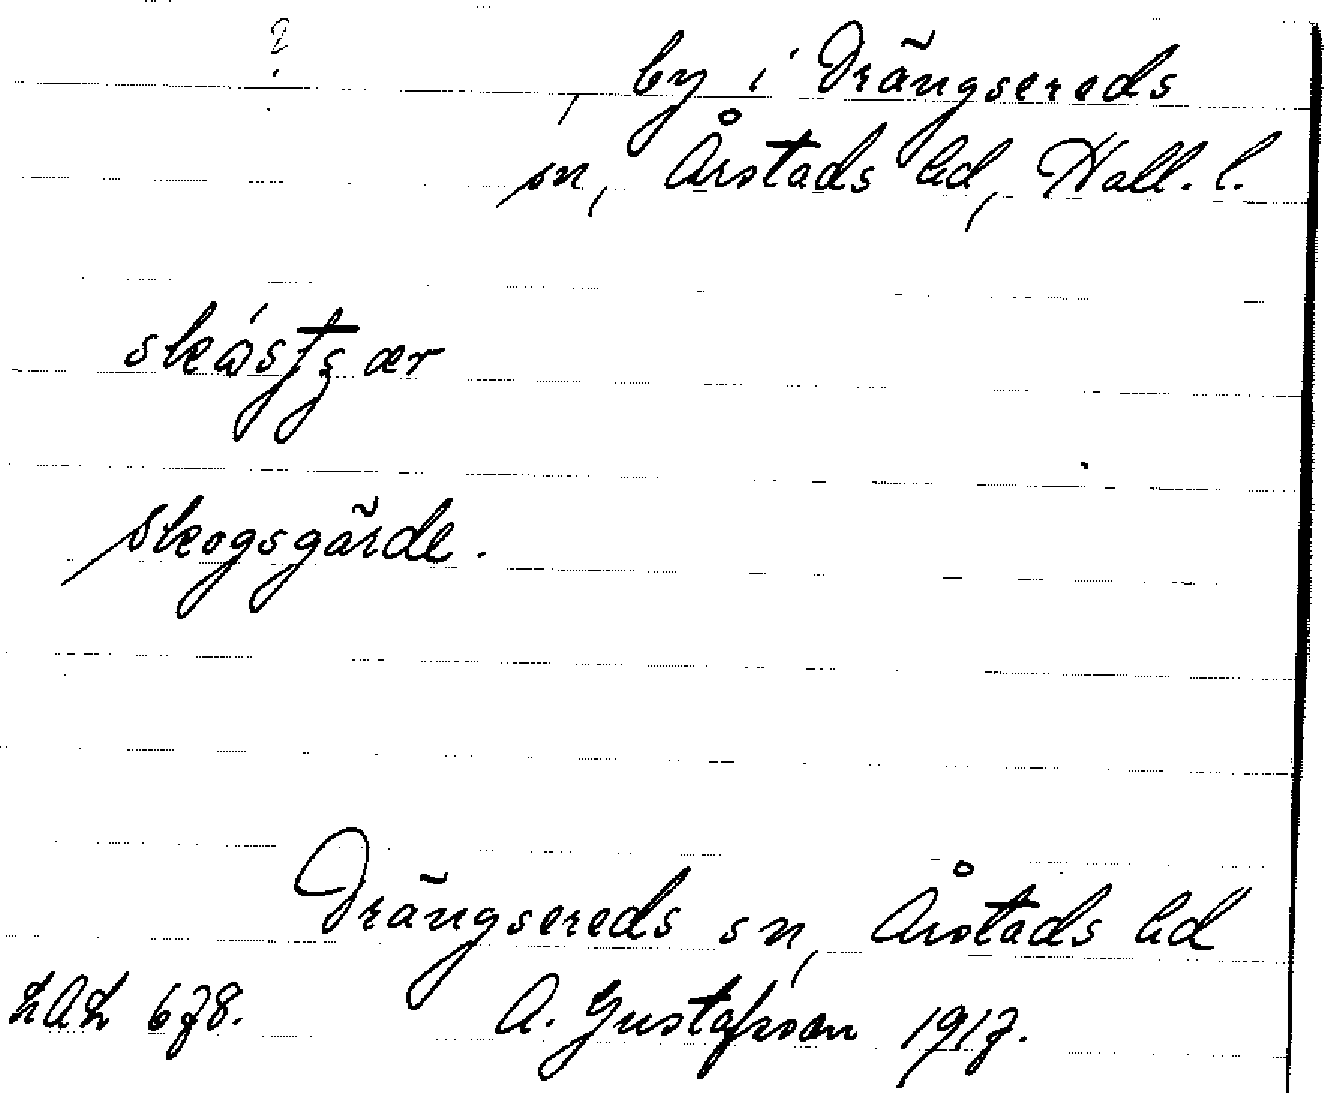 ?
, by i Drängsereds
sn, Årstads hd, Hall. l.
Skogsgärde.
Drängsereds sn, Årstads hd
LAL 678. A. Gustafson 1917.